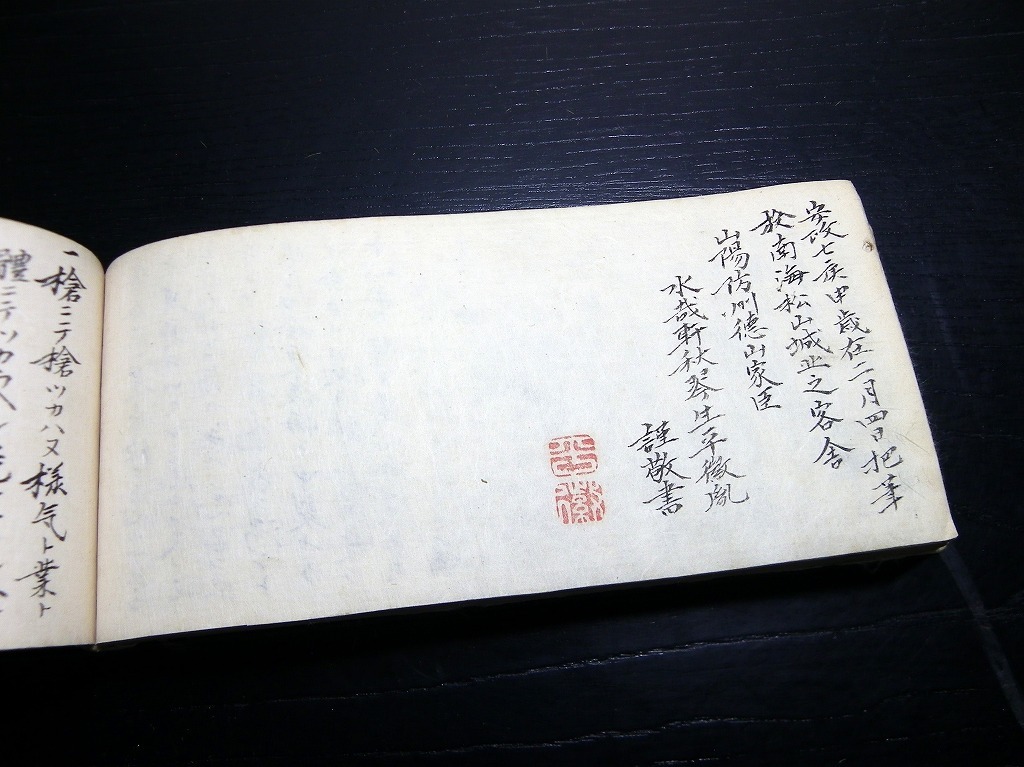 安政七庚申歳在二月四日把筆
於南海松山城北之客舎
山陽防州德山家臣
水哉軒秋琴生平徽胤
謹敬書
平徽
一槍ニテ槍ツカハヌ様気ト業ト
體ニテツカヘ